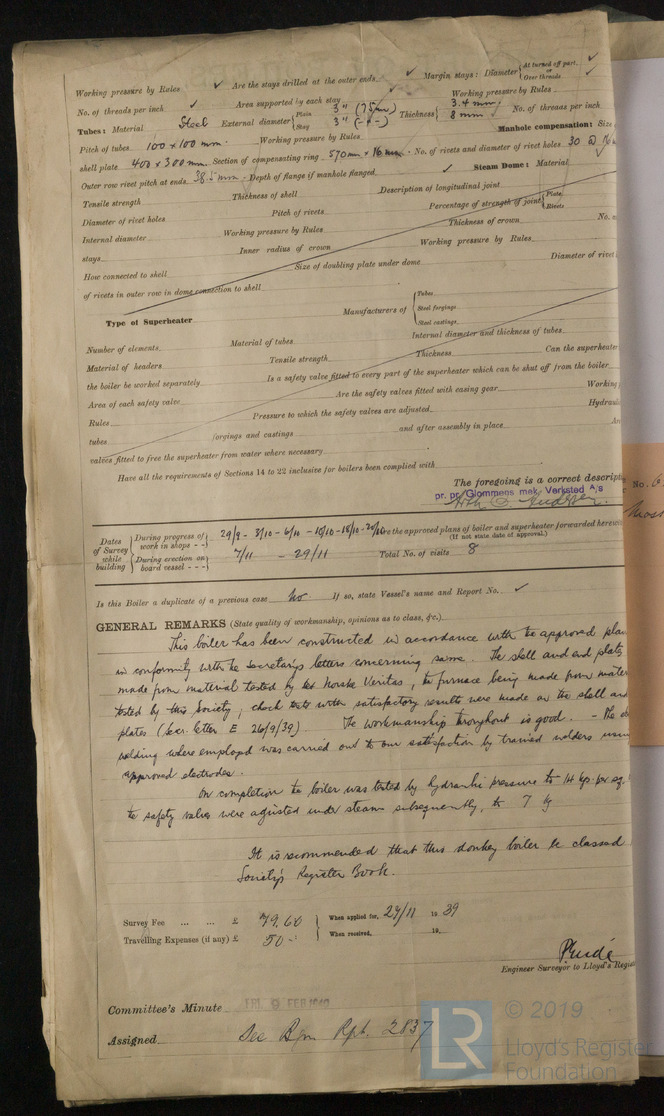 Working pressure by Rules ✓ Are the stays drilled at the outer ends ✓ Margin stays: Diameter { At turned off part, or Over threads ✓
No. of threads per inch ✓ Area supported by each stay ✓ Working pressure by Rules
Tubes: Material Steel External diameter { Plain 3" (75 m/m) Stay 3" Thickness { 3.4 mm. 8 mm ✓ No. of threads per inch
Pitch of tubes 100 x 100 mm. Working pressure by Rules Manhole compensation: Size
shell plate 400 x 300 mm. Section of compensating ring 570 mm x 16 mm No. of rivets and diameter of rivet holes 30
Outer row rivet pitch at ends 38.5 mm Depth of flange if manhole flanged ✓ Steam Dome: Material
Tensile strength Thickness of shell Description of longitudinal joint
Diameter of rivet holes Pitch of rivets Percentage of strength of joint { Plate Rivets
Internal diameter Working pressure by Rules Thickness of crown No.
stays Inner radius of crown Working pressure by Rules
How connected to shell Size of doubling plate under dome Diameter of rivet
of rivets in outer row in dome connection to shell
Type of Superheater Manufacturers of { Tubes Steel forgings Steel castings
Number of elements Material of tubes Internal diameter and thickness of tubes
Material of headers Tensile strength Thickness Can the superheater
the boiler be worked separately Is a safety valve fitted to every part of the superheater which can be shut off from the boiler
Area of each safety valve Are the safety valves fitted with easing gear Working
Rules Pressure to which the safety valves are adjusted Hydraul
tubes forgings and castings and after assembly in place Are
valves fitted to free the superheater from water where necessary
Have all the requirements of Sections 14 to 22 inclusive for boilers been complied with
The foregoing is a correct descripti
pr. pr. Glommens mek. Verksted A/s
Dates of Survey while building { During progress of work in shops - - 29/9 - 3/10 - 6/10 - 10/10 - 18/10 - 20/10 Are the approved plans of boiler and superheater forwarded herewith
(If not state date of approval.)
During erection on board vessel - - - 7/11 - 29/11 Total No. of visits 8
Is this Boiler a duplicate of a previous case No. If so, state Vessel's name and Report No. ✓
GENERAL REMARKS (State quality of workmanship, opinions as to class, &c.)
This boiler has been constructed in accordance with the approved plan
in conformity with the Secretarys letters concerning same. The shell and end plates
made from material tested by Norske Veritas, the furnace being made from mater
tested by this Society; check tests with satisfactory results were made on the shell and
plates (Secr. letter E 26/9/39). The workmanship throughout is good. - The
welding where employed was carried out to our satisfaction by trained welders using
approved electrodes.
On completion the boiler was tested by hydraulic pressure to 14 kg. per sq.
the safety valves were adjusted under steam subsequently, to 7 kg
It is recommended that this donkey boiler be classed
Society's Register Book.
Survey Fee ... ... £ 79.60 When applied for, 29/11 19 39
Travelling Expenses (if any) £ 50.- When received, 19
Engineer Surveyor to Lloyd's Regis
Committee's Minute FRI. 9 FEB 1940
Assigned See Rpt. 2837
No. 6
Moss
LR
© 2019
Lloyd's Register
Foundation